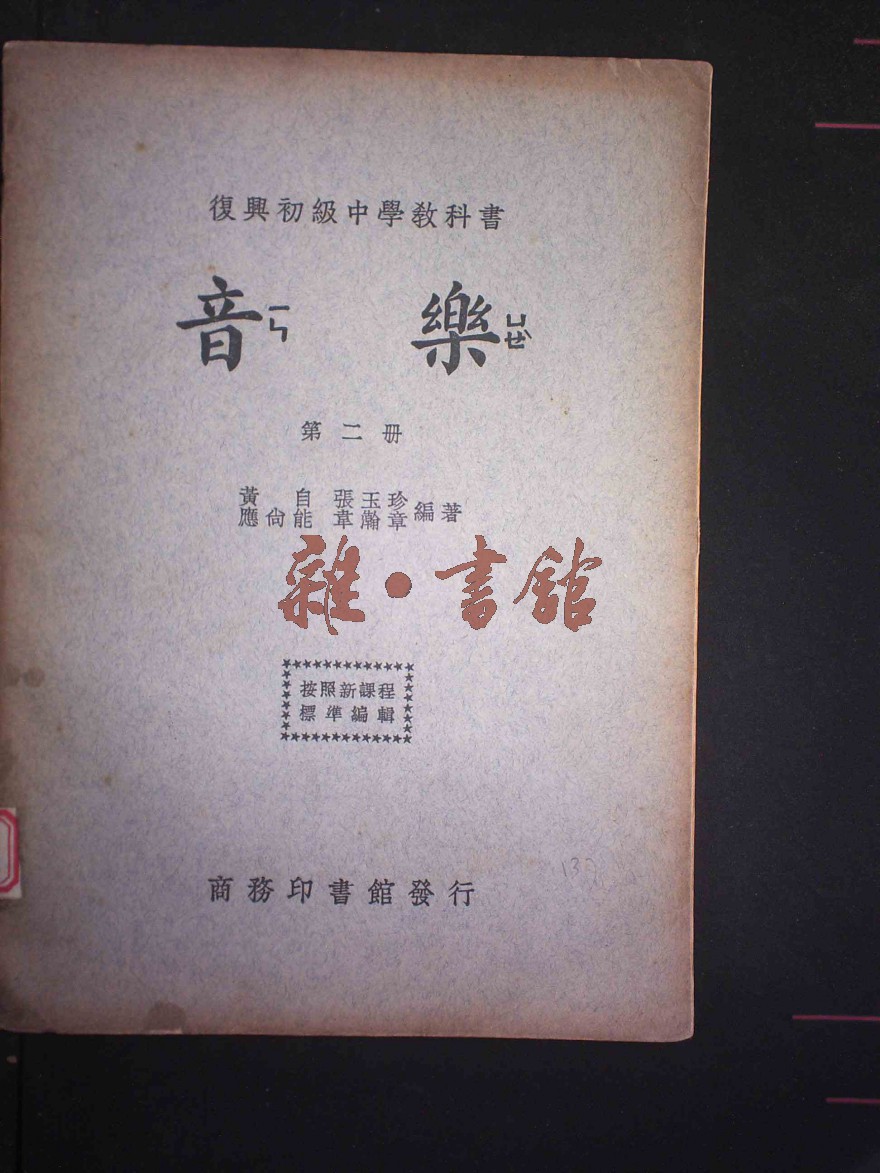 復興初級中學教科書
音ㄧㄣ 樂ㄩㄝˋ
第二册
黃自 張玉珍
應尙能 韋瀚章 編著
雜·書館
按照新課程
標準編輯
商務印書館發行
137